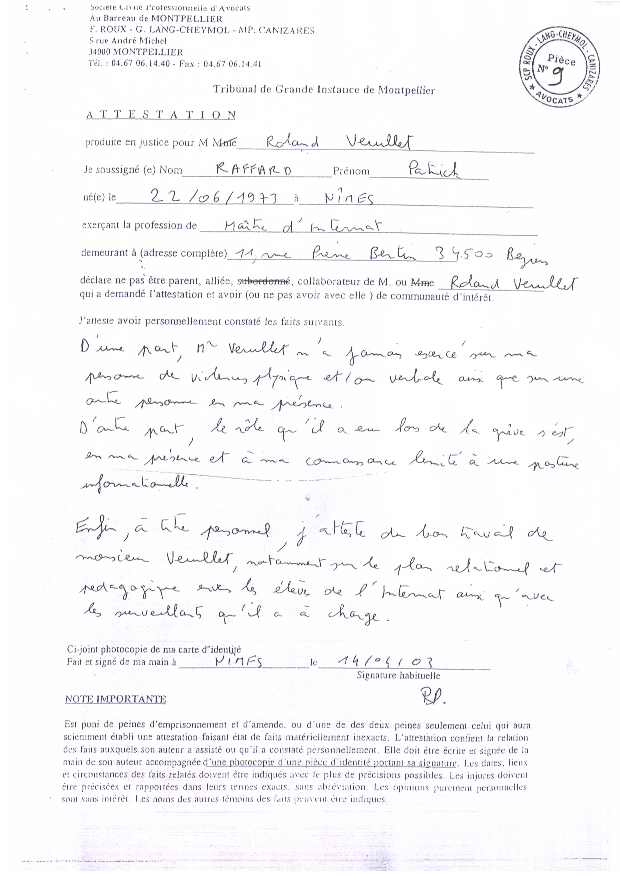 Société Civile Professionnelle d'Avocats
Au Barreau de MONTPELLIER
F. ROUX - G. LANG-CHEYMOL - MP. CANIZARES
5 rue André Michel
34000 MONTPELLIER
Tél. : 04.67 06.14.40 - Fax : 04.67 06.14.41
SCP ROUX - LANG-CHEYMOL - CANIZARES
Pièce
N° 9
★ AVOCATS ★
Tribunal de Grande Instance de Montpellier
A T T E S T A T I O N
produite en justice pour M Mme Roland Veuillet
Je soussigné (e) Nom RAFFARD Prénom Patrick
né(e) le 22/06/1973 à NîMES
exerçant la profession de Maître d'Internat
demeurant à (adresse complète) 11, rue Pierre Bertin 34500 Beziers
déclare ne pas être parent, alliée, subordonné, collaborateur de M. ou Mme Roland Veuillet
qui a demandé l'attestation et avoir (ou ne pas avoir avec elle ) de communauté d'intérêt.
J'atteste avoir personnellement constaté les faits suivants.
D'une part, Mr Veuillet n'a jamais exercé sur ma
personne de violences physique et/ou verbale ainsi que sur une
autre personne en ma présence.
D'autre part, le rôle qu'il a eu lors de la grève s'est,
en ma présence et à ma connaissance limité à une posture
informationnelle.
Enfin, à titre personnel, j'atteste du bon travail de
monsieur Veuillet, notamment sur le plan relationnel et
pedagogique envers les élève de l'Internat ainsi qu'avec
les surveillants qu'il a à charge.
Ci-joint photocopie de ma carte d'identité
Fait et signé de ma main à NIMES le 14/04/03
Signature habituelle
RP.
NOTE IMPORTANTE
Est puni de peines d'emprisonnement et d'amende, ou d'une de des deux peines seulement celui qui aura
sciemment établi une attestation faisant état de faits matériellement inexacts. L'attestation contient la relation
des faits auxquels son auteur a assisté ou qu'il a constaté personnellement. Elle doit être écrite et signée de la
main de son auteur accompagnée d'une photocopie d'une pièce d'identité portant sa signature. Les dates, lieux
et circonstances des faits relatés doivent être indiqués avec le plus de précisions possibles. Les injures doivent
être précisées et rapportées dans leurs termes exacts, sans abréviation. Les opinions purement personnelles
sont sans intérêt. Les noms des autres témoins des faits peuvent être indiqués.